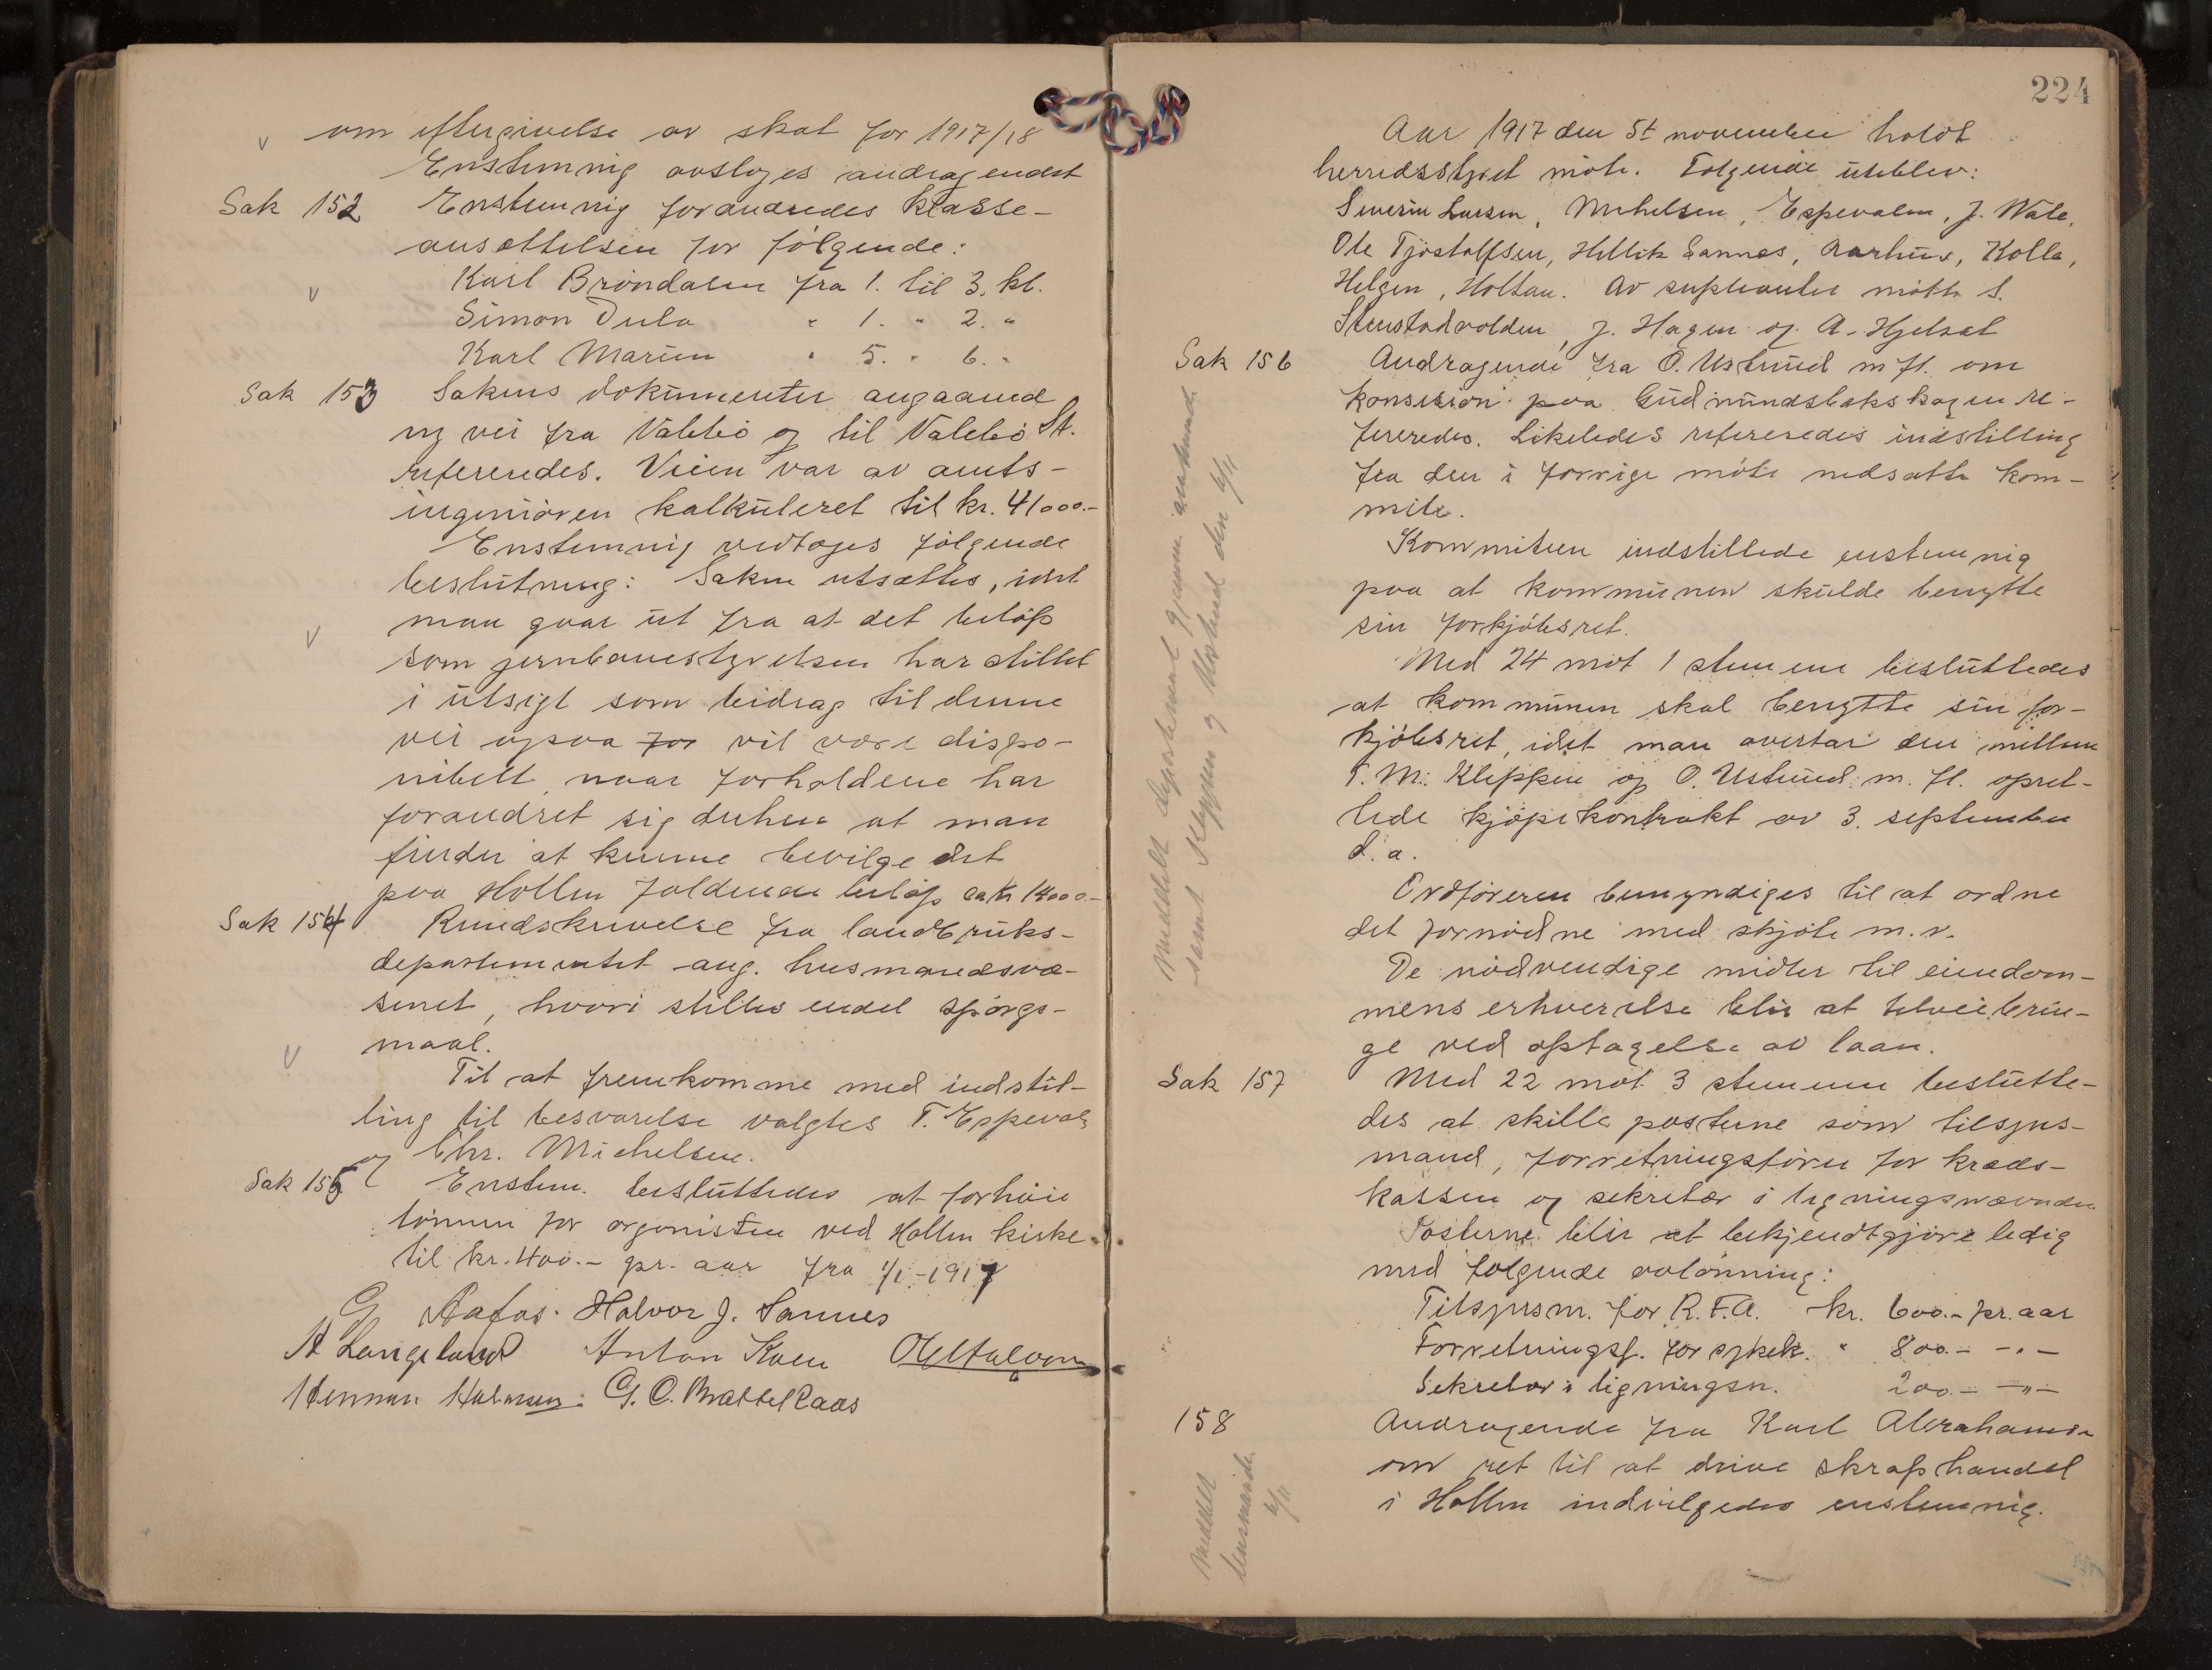 om eftergivelse av skat for 1917/18
Enstemmig avsloges andragendet
Sak 152 Enstemmig forandredes klasse-
ansættelsen for følgende:
Karl Brøndalen fra 1. til 3. kl.
Simon Dula " 1. " 2. "
Karl Marum " 5. " 6. "
Sak 153 Sakens dokumenter angaaend
ny vei fra Valebø og til Valebø St.
refereredes. Veien var av amts-
ingeniøren kalkuleret til kr. 41000.-
Enstemmig vedtoges følgende
beslutning: Saken utsættes, idet
man gaar ut fra at det beløp
som jernbanestyrelsen har stillet
i utsigt som bidrag til denne
vei ogsaa for vil være dispo-
nibelt naar forholdene har
forandret sig derhen at man
finder at kunne bevilge det
paa Hollen faldende beløp ca kr 14000.-
Sak 154 Rundskrivelse fra landbruks-
departementet ang. husmandsvæ-
senet, hvori stilles endel spørgs-
maal.
Til at fremkomme med indstil-
ling til besvarelse valgtes T. Espeval
og Chr. Michelsen.
Sak 155 Enstem. besluttedes at forhøie
lønnen for organisten ved Hollen kirke
til kr. 400.- pr. aar fra 1/1-1917
G Aafos. Halvor J. Sannes
H Langeland Anton Kaasa
Herman Halvorsen. G. O. Brattekaas
224
Aar 1917 den 5t november holdt
herredsstyret møte. Følgende uteblev:
Severin Larsen, Michelsen, Espevalen, J. Wale,
Ole Tjostolfsen, Hellik Sannes, Aarhus, Kolle,
Helgen, Holtan. Av suppleanter møtte S.
Stenstadvolden, J. Hagen og A. Hjelset
Sak 156 Andragende fra O. Ustuned m fl. om
konsesion paa Gudmundsbækskogen re-
fereredes. Likeledes refereredes indstilling
fra den i forrige møte nedsatte kom-
mite.
Kommiteen indstillede enstemmig
paa at kommunen skulde benytte
sin forkjøbsret.
Med 24 mot 1 stemme besluttedes
at kommunen skal benytte sin for-
kjøbsret, idet man overtar den mellem
T. M. Kleppen og O. Ustuned m. fl. opret-
tede kjøpekontrakt av 3. september
d. a.
Ordføreren bemyndiges til at ordne
det fornødne med skjøte m. v.
De nødvendige midler til eiendom-
mens erhverelse blir at tilveiebrin-
ge ved optagelse av laan.
Meddelt departement gjennem amtmand
samt Kleppen og Ustuned den 6/11
Sak 157 Med 22 mot 3 stemmer beslutte-
des at skille posterne som tilsyns-
mand, forretningsfører for kreds-
kassen og sekretær i ligningsnævnden
Posterne blir at bekjendtgjøre ledig
med følgende avlønning:
Tilsynsm. for R.F.A. kr. 600.- pr. aar
Forretningsf. for sykek. " 800.- -"-
Sekretær i ligningsn. 200.- -"-
158 Andragende fra Karl Abrahamsen
om ret til at drive skraphandel
i Hollen indvilgedes enstemmig.
Meddelt
lensmanden
6/11